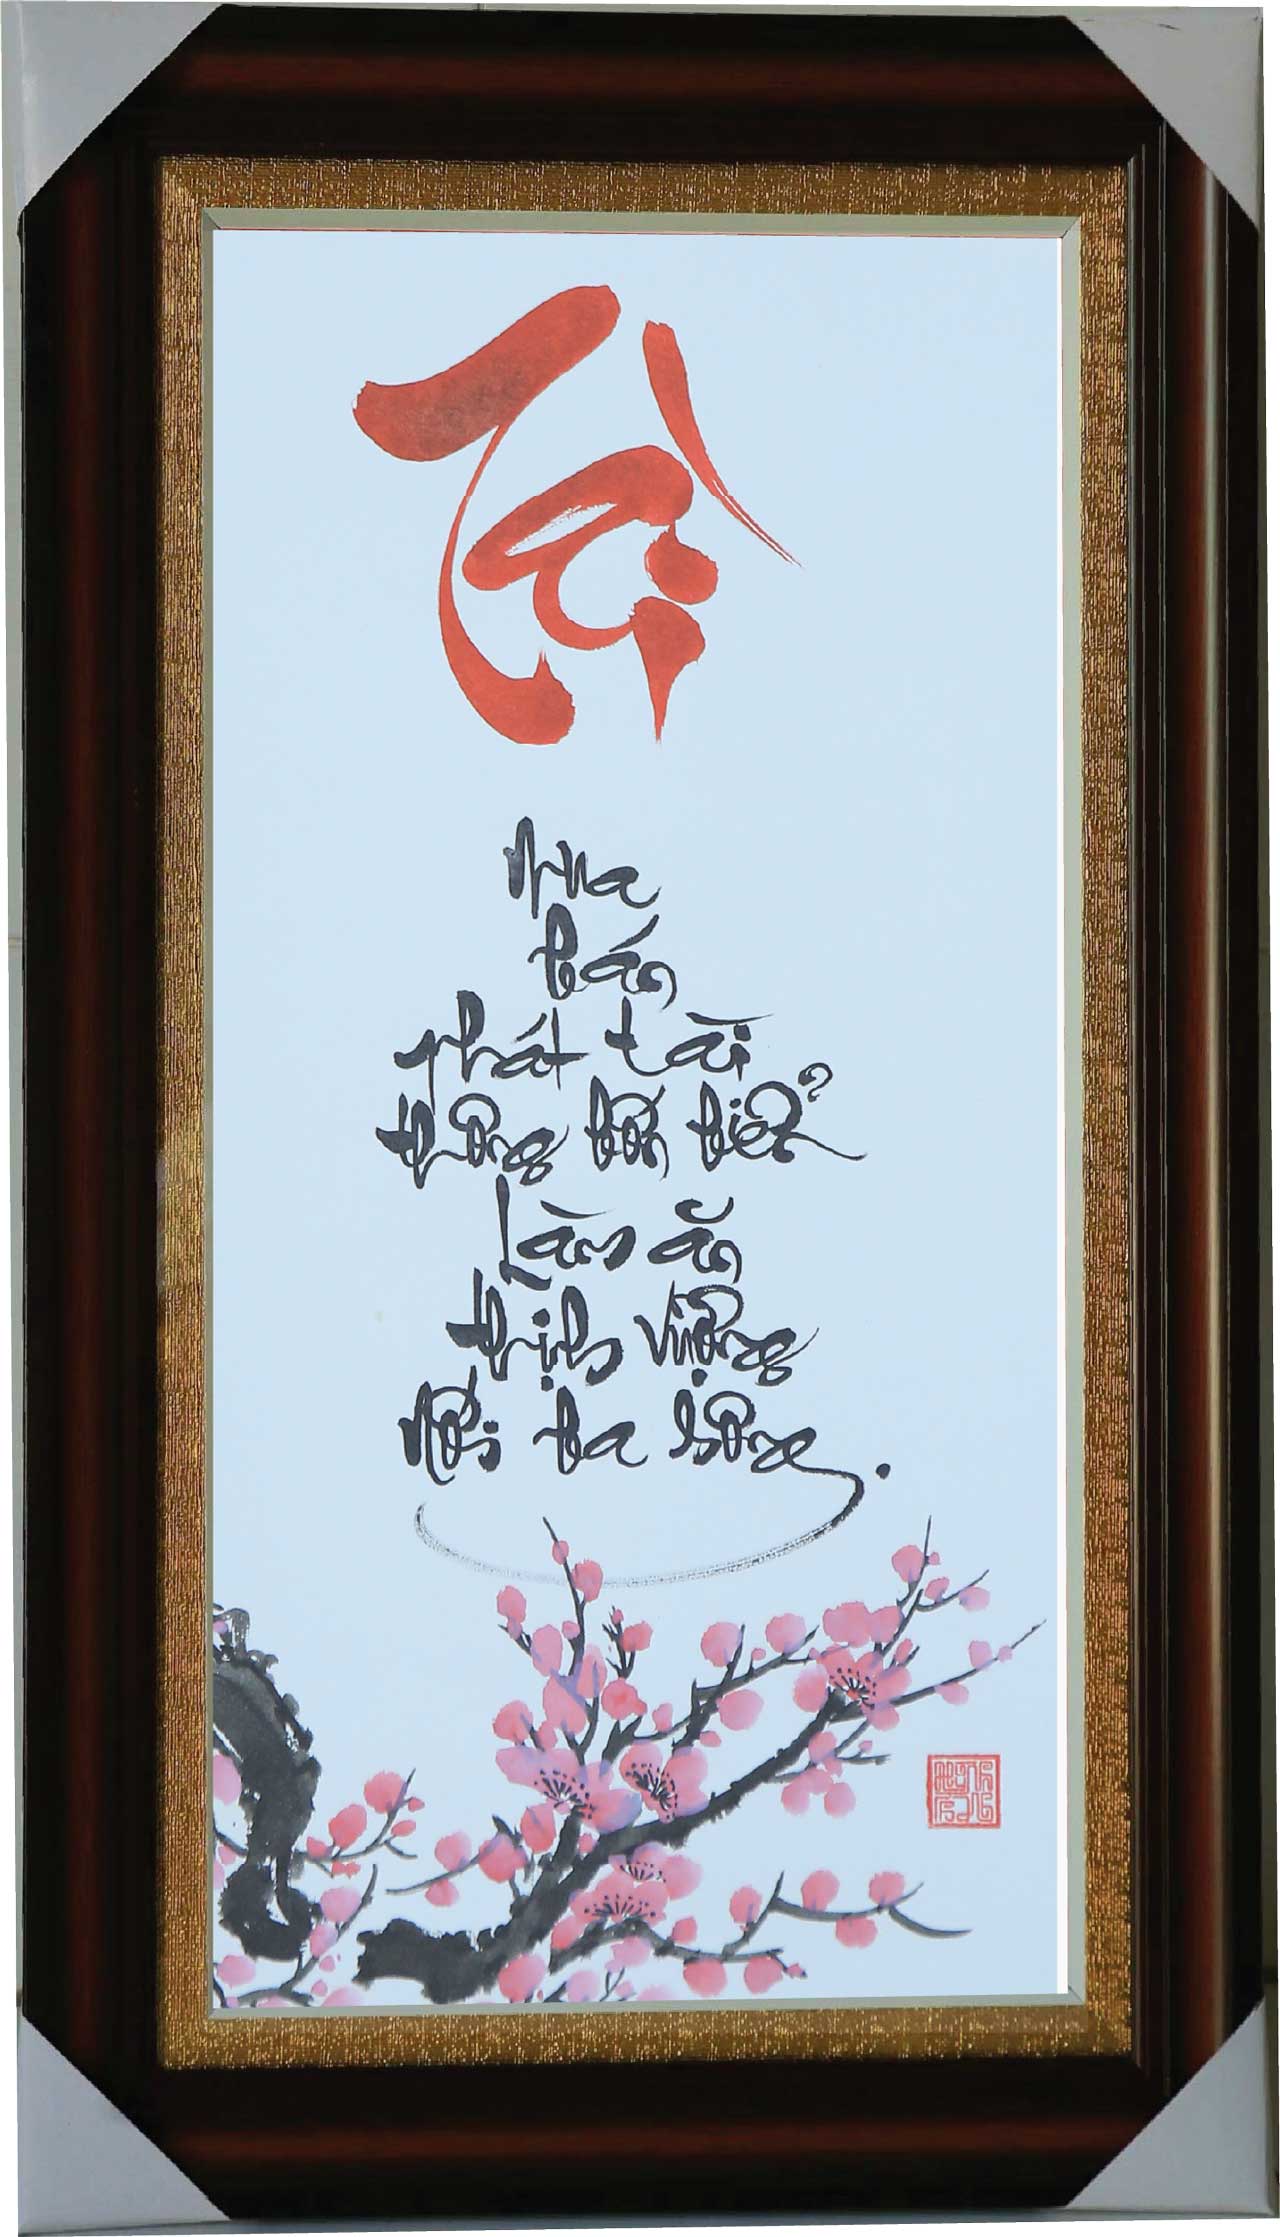 Tài
Mua
bán
phát tài
thông bốn biển
Làm ăn
thịnh vượng
Nối ba sông.